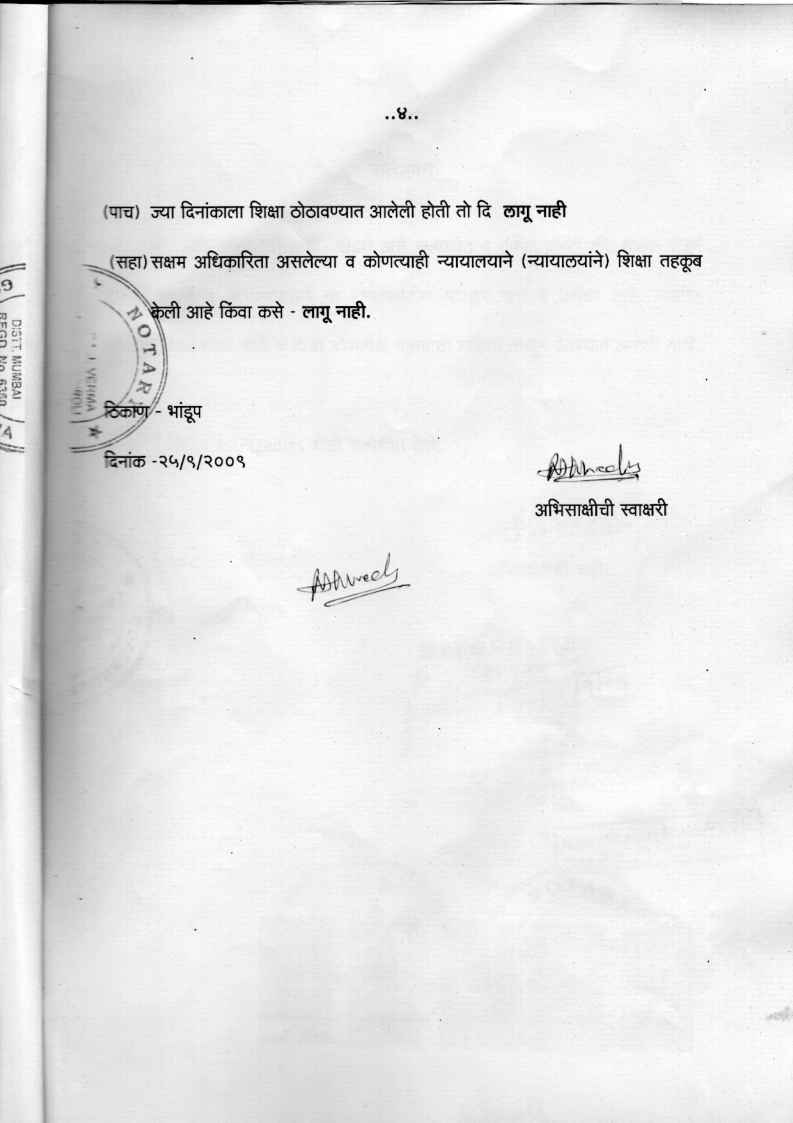 ..४..
(पाच) ज्या दिनांकाला शिक्षा ठोठावण्यात आलेली होती तो दि लागू नाही
(सहा) सक्षम अधिकारिता असलेल्या व कोणत्याही न्यायालयाने (न्यायालयांने) शिक्षा तहकूब
केली आहे किंवा कसे - लागू नाही.
NOTARY
VERMA
ठिकाण - भांडूप
दिनांक -२५/९/२००९
अभिसाक्षीची स्वाक्षरी
DISTT. MUMBAI
REGD. No. 6360